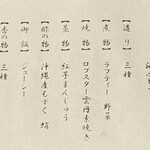 造り 三種
煮物 ラフティー 野菜
焼物 ロブスター雲丹素焼き
蒸物 紅芋まんじゅう
酢の物 沖縄産もずく 蛸
御飯 ジューシー
香の物 三種